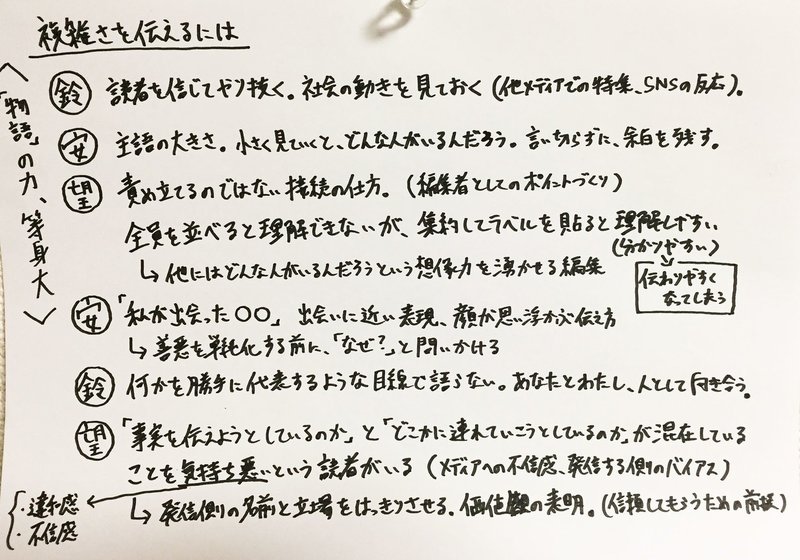 複雑さを伝えるには
<「物語」の力、等身大>
鈴 読者を信じてやり抜く。社会の動きを見ておく(他メディアでの特集、SNSの反応)。
安 主語の大きさ。小さく見ていくと、どんな人がいるんだろう。言い切らずに、余白を残す。
望 責め立てるのではない接続の仕方。(編集者としてのポイントづくり)
全員を並べると理解できないが、集約してラベルを貼ると理解しやすい
(分かりやすい)
↳他にはどんな人がいるんだろうという想像力を湧かせる編集
伝わりやすく
なってしまう
安 「私が出会った〇〇」 出会いに近い表現、顔が思い浮かぶ伝え方
↳善悪を単純化する前に、「なぜ?」と問いかける
鈴 何かを勝手に代表するような目線で語らない。あなたとわたし、人として向き合う。
望 「事実を伝えようとしているのか」と「どこかに連れていこうとしているのか」が混在している
ことを気持ち悪いという読者がいる (メディアへの不信感、発信する側のバイアス)
・違和感
・不信感
↳発信側の名前と立場をはっきりさせる。価値観の表明。(信頼してもらうための前提)